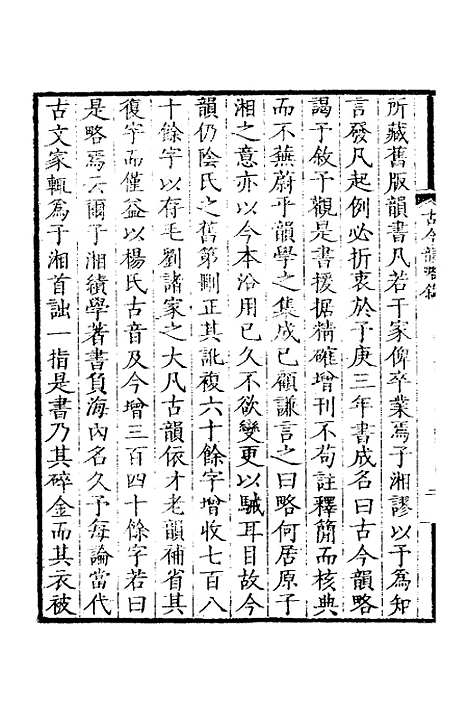 所藏舊版韻書凡若干家俾卒業焉子湘謬以予爲知
言發凡起例必折衷於予庚三年書成名曰古今韻略
謁予敘予觀是書援据精確增刊不苟註釋簡而核典
而不蕪蔚乎韻學之集成已顧謙言之曰略何居原子
湘之意亦以今本沿用已久不欲變更以駴耳目故今
韻仍陰氏之舊第刪正其訛複六十餘字增收七百八
十餘字以存毛劉諸家之大凡古韻依才老韻補省其
復字而僅益以楊氏古音及今增三百四十餘字若曰
是略焉云爾子湘績學著書負海內名久予每論當代
古文家輒爲子湘首詘一指是書乃其碎金而其衣被
古今韻略